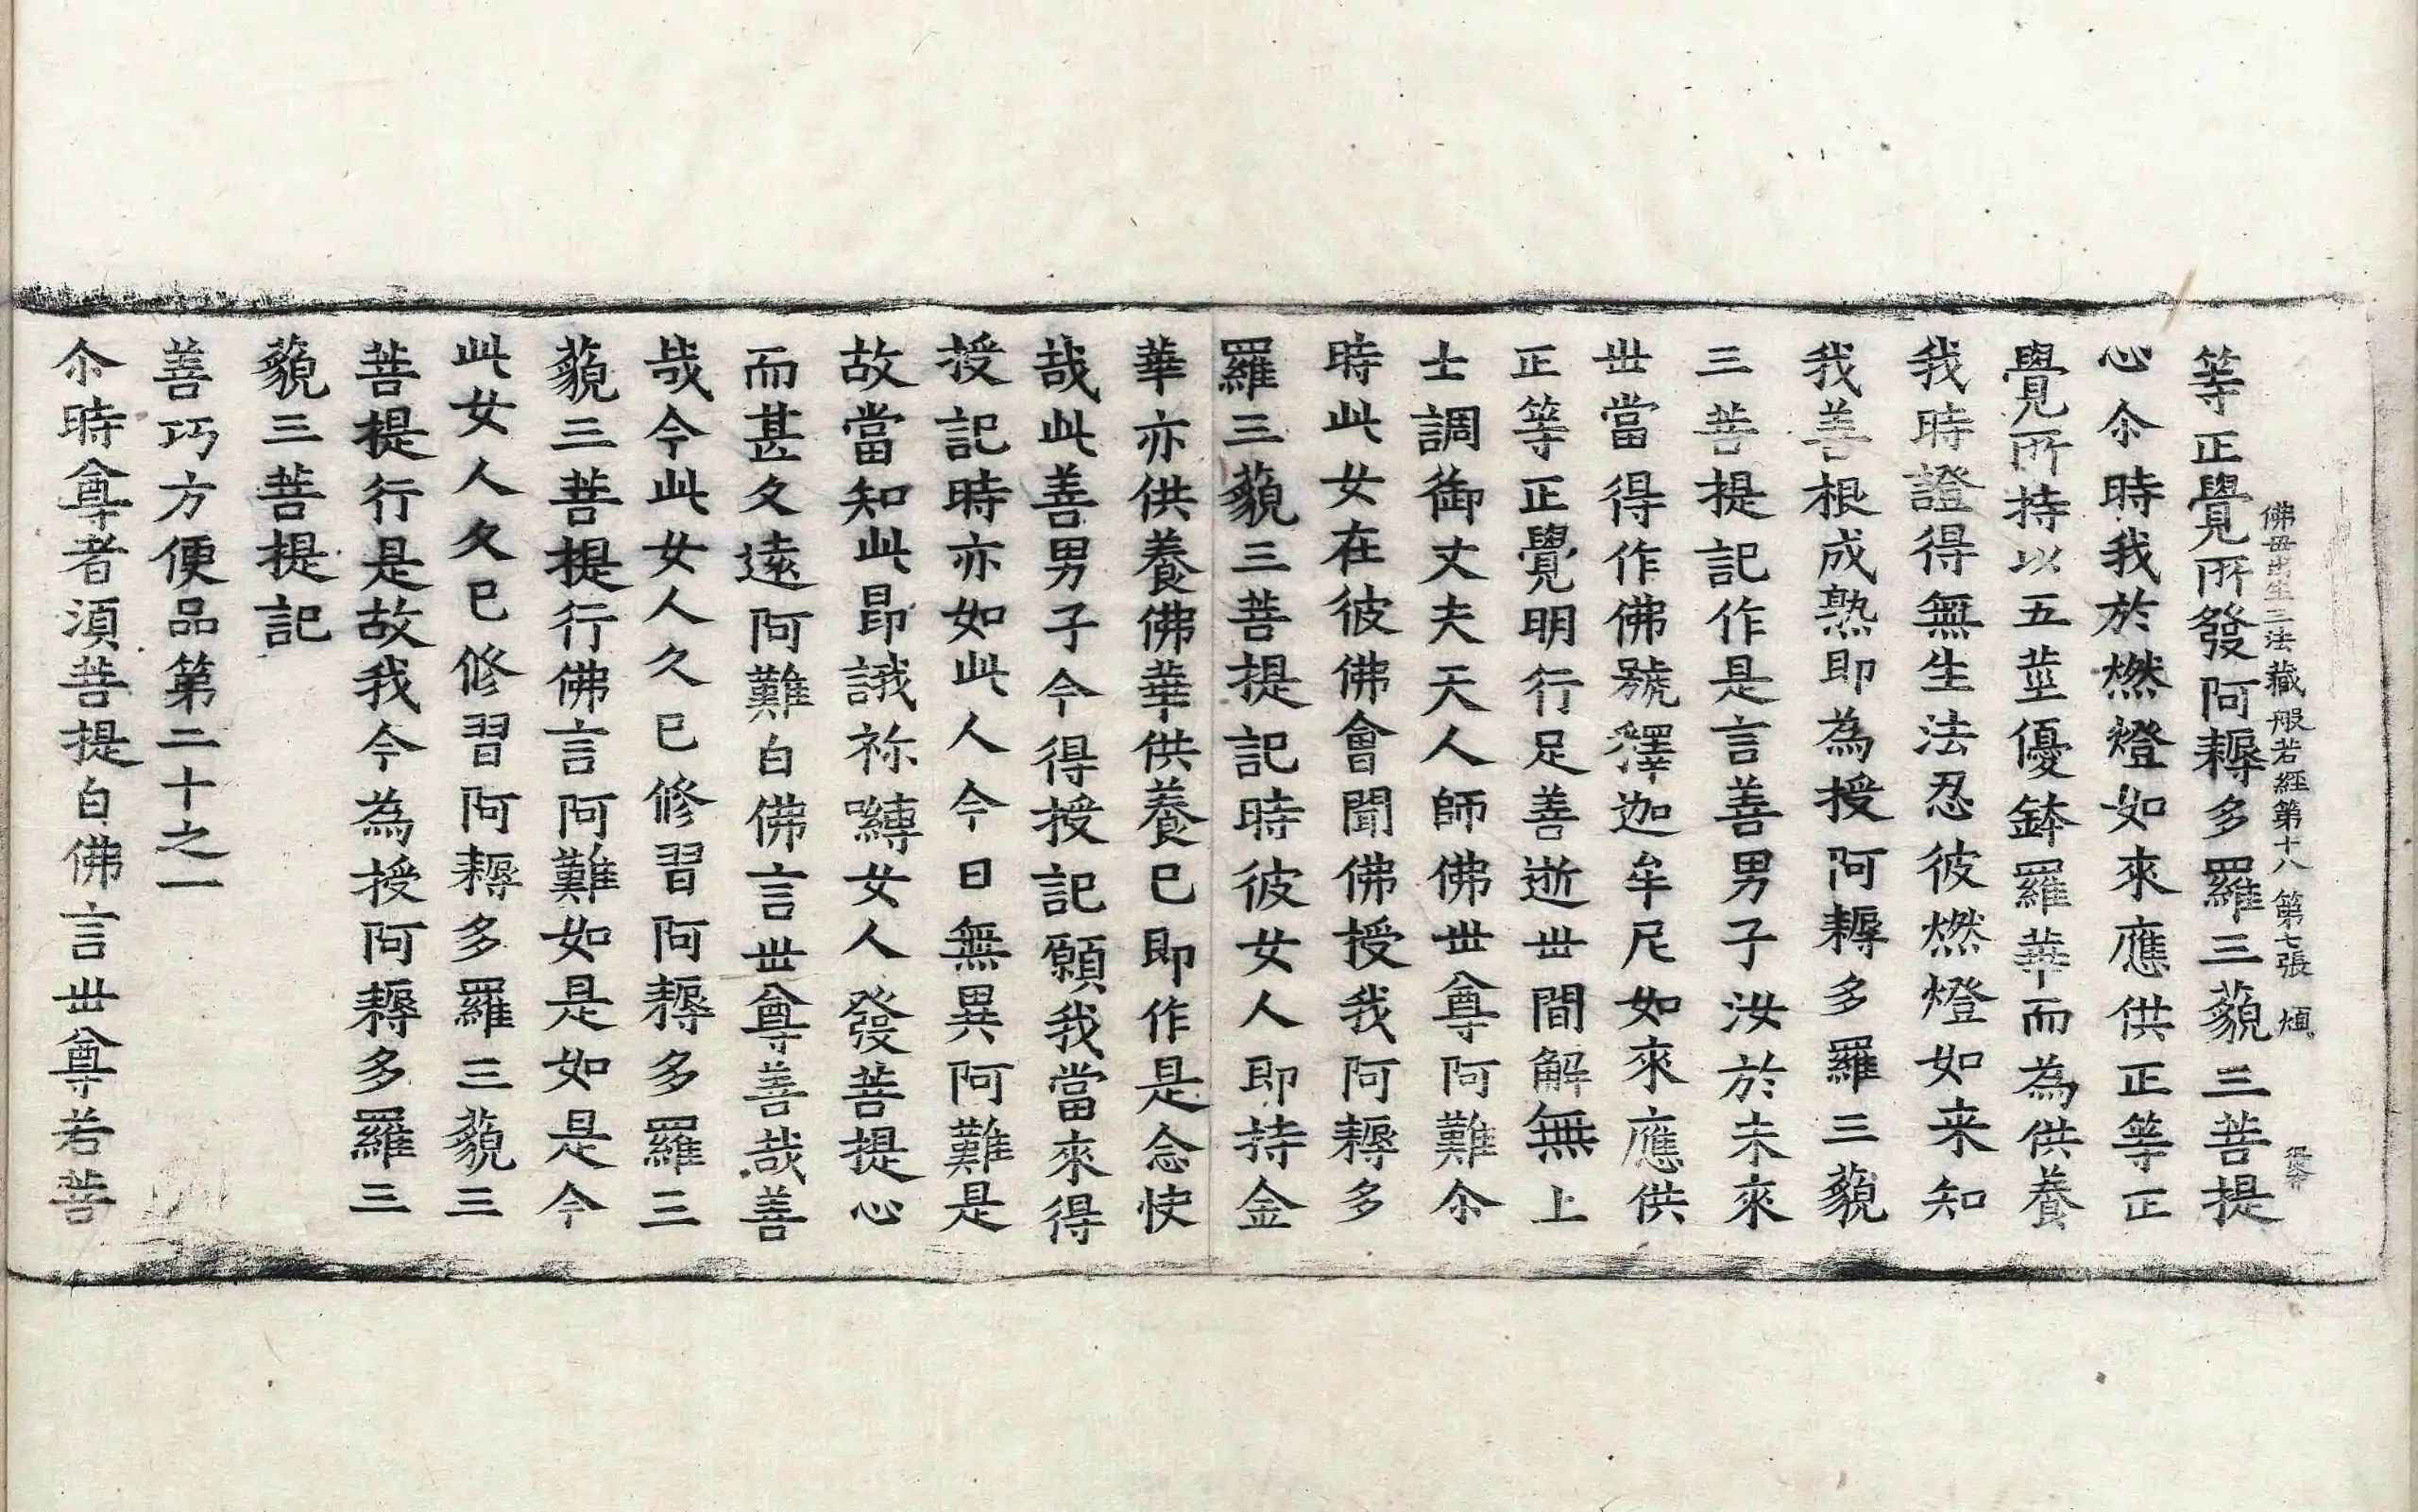 等正覺所發阿耨多羅三藐三菩提
佛毋出生三法藏般若經第十八 第七張 傾
心尒時我於燃燈如來應供正等正
覺所持以五莖優鉢羅華而為供養
我時證得無生法忍彼燃燈如来知
我善根成熟即為授阿耨多羅三藐
三菩提記作是言善男子汝於未來
丗當得作佛號釋迦牟尼如來應供
正等正覺明行足善逝丗間解無上
士調御丈夫天人師佛丗尊阿難尒
時此女在彼佛會聞佛授我阿耨多
羅三藐三菩提記時彼女人即持金
華亦供養佛華供養已即作是念快
哉此善男子今得授記願我當來得
授記時亦如此人今日無異阿難是
故當知此昂誐祢嚩女人發菩提心
而甚久遠阿難白佛言丗尊善哉善
哉今此女人久已修習阿耨多羅三
藐三菩提行佛言阿難如是如是今
此女人久已修習阿耨多羅三藐三
菩提行是故我今為授阿耨多羅三
藐三菩提記
善巧方便品第二十之一
尒時尊者湏菩提白佛言丗尊若菩